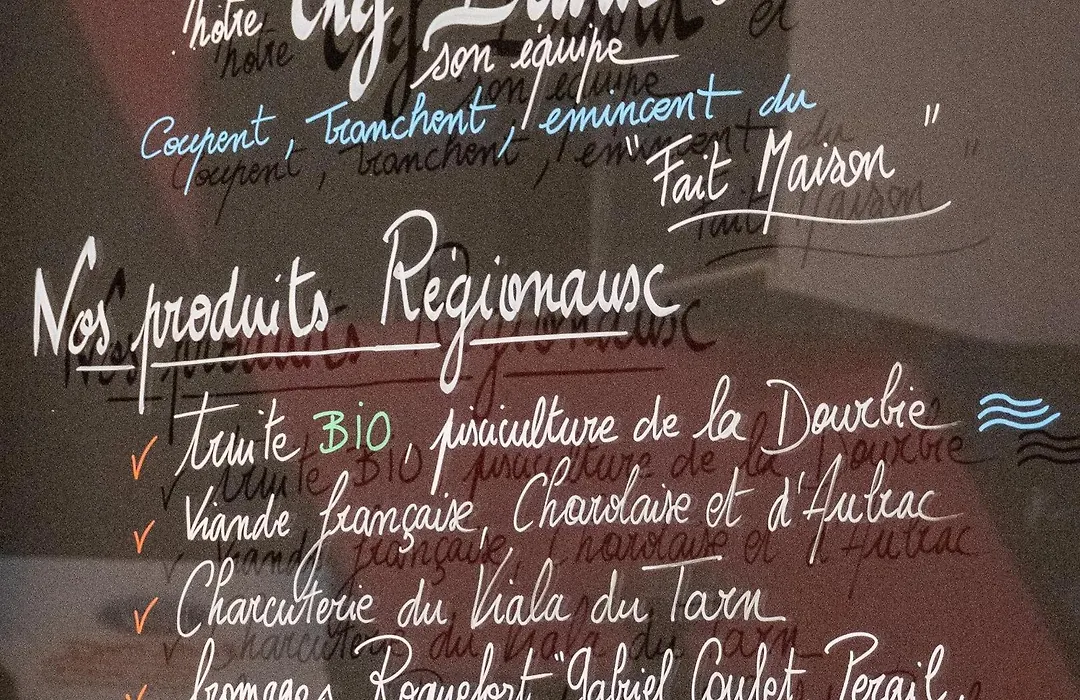 notre Chef
son équipe
Coupent, Tranchent, émincent du
"Fait Maison"
Nos produits Régionaux
truite BIO, pisciculture de la Dourbie
Viande française, Charolaise et d'Aubrac
Charcuterie du Viala du Tarn
fromages Roquefort "Gabriel Coulet, Perail